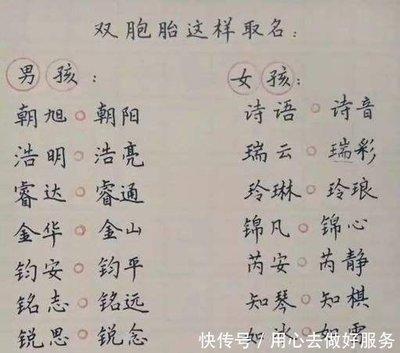 双胞胎这样取名：
男孩：
女孩：
朝旭 朝阳
诗语 诗音
浩明 浩亮
瑞云 瑞彩
睿达 睿通
玲琳 玲琅
金华 金山
锦凡 锦心
钧安 钧平
芮安 芮静
铭志 铭远
知琴 知棋
锐思 锐念
如冰 如雪
快传号/用心去做好服务